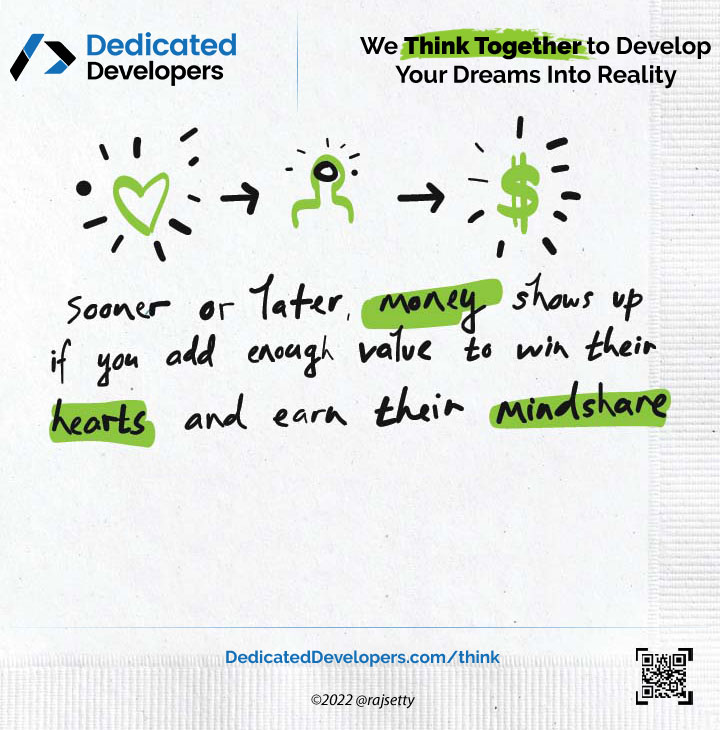 Dedicated
Developers
We Think Together to Develop
Your Dreams Into Reality
sooner or later, money shows up
if you add enough value to win their
hearts and earn their mindshare
DedicatedDevelopers.com/think
©2022 @rajsetty